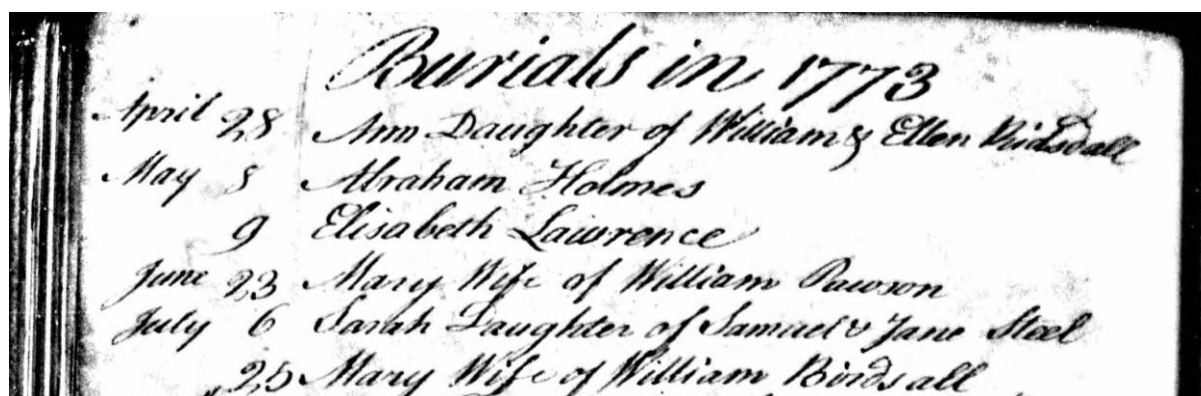 Burials in 1773
April 28 Ann Daughter of William & Ellen Ridsdall
May 8 Abraham Holmes
9 Elisabeth Lawrence
June 23 Mary Wife of William Pawson
July 6 Sarah Daughter of Samuel & Jane Steel
25 Mary Wife of William Birdsall